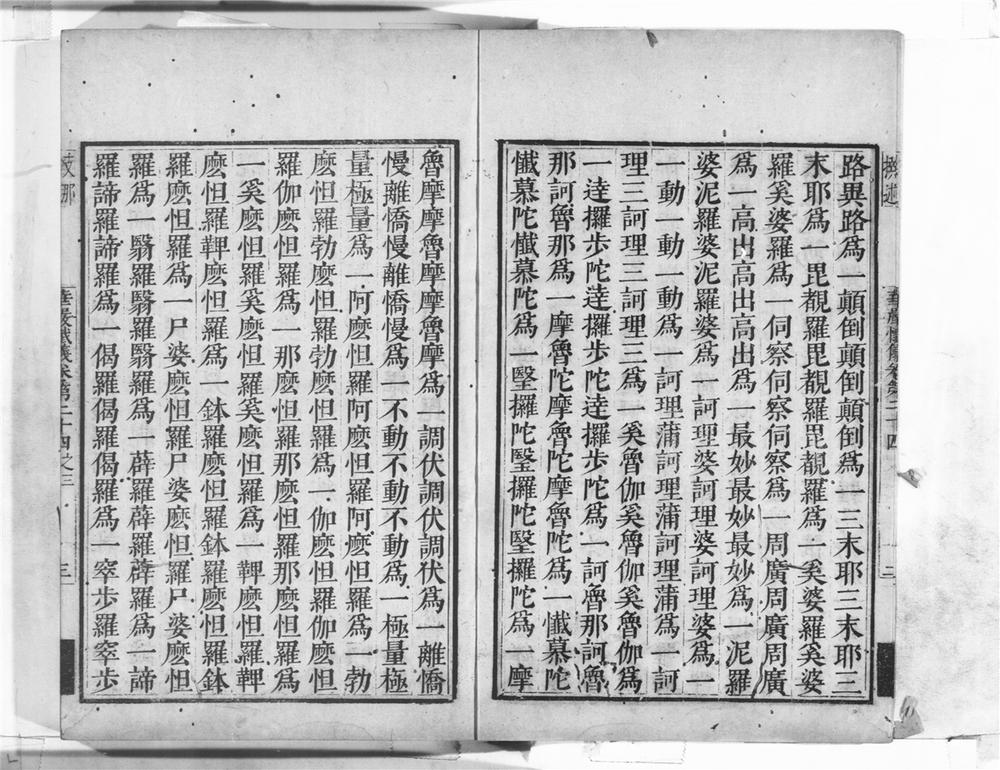 路異路爲一顛倒顛倒顛倒爲一三末耶三末耶三
末耶爲一毘覩羅毘覩羅毘覩羅爲一奚婆羅奚婆
羅奚婆羅爲一伺察伺察伺察爲一周廣周廣周廣
爲一高出高出高出爲一最妙最妙最妙爲一泥羅
婆泥羅婆泥羅婆爲一訶理婆訶理婆訶理婆爲一
一動一動一動爲一訶理蒲訶理蒲訶理蒲爲一訶
理三訶理三訶理三爲一奚魯伽奚魯伽奚魯伽爲
一逹攞步陀逹攞步陀逹攞步陀爲一訶魯那訶魯
那訶魯那爲一摩魯陀摩魯陀摩魯陀爲一懺慕陀
懺慕陀懺慕陀爲一瑿攞陀瑿攞陀瑿攞陀爲一摩
魯摩摩魯摩摩魯摩爲一調伏調伏調伏爲一離憍
慢離憍慢離憍慢爲一不動不動不動爲一極量極
量極量爲一阿麽怛羅阿麽怛羅阿麽怛羅爲一勃
麽怛羅勃麽怛羅勃麽怛羅爲一伽麽怛羅伽麽怛
羅伽麽怛羅爲一那麽怛羅那麽怛羅那麽怛羅爲
一奚麽怛羅奚麽怛羅奚麽怛羅爲一鞞麽怛羅鞞
麽怛羅鞞麽怛羅爲一鉢羅麽怛羅鉢羅麽怛羅鉢
羅麽怛羅爲一尸婆麽怛羅尸婆麽怛羅尸婆麽怛
羅爲一翳羅翳羅翳羅爲一薜羅薜羅薜羅爲一諦
羅諦羅諦羅爲一偈羅偈羅偈羅爲一窣步羅窣步
華嚴懺儀卷第二十四之三 三